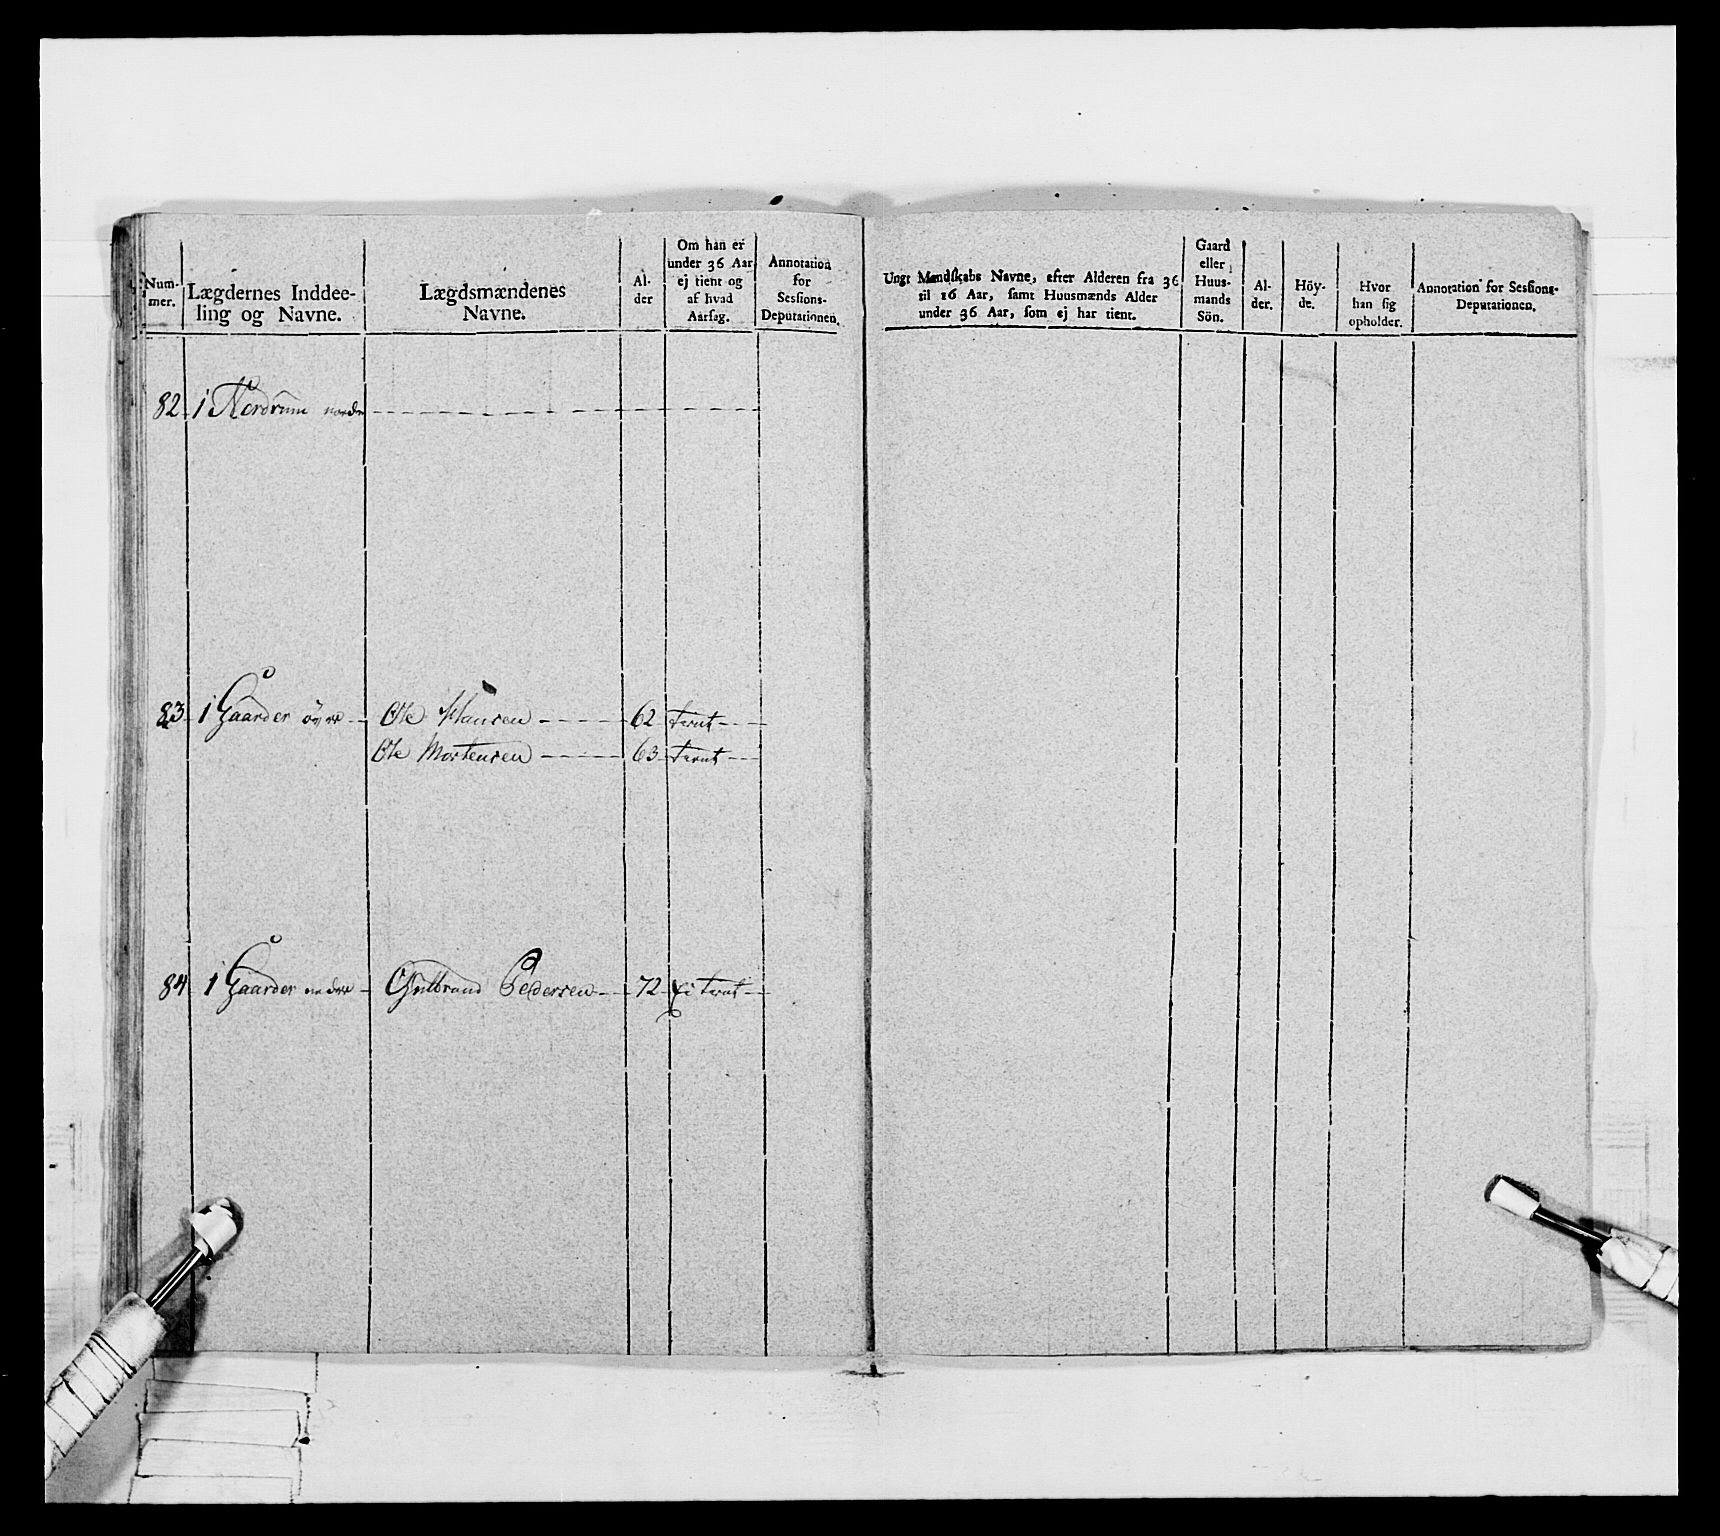 Num-
mer.
Lægdernes Inddee-
ling og Navne.
Lægdsmændenes
Navne.
Al-
der
Om han er
under 36 Aar
ej tient og
af hvad
Aarsag.
Annotation
for
Sessions-
Deputationen.
Ungt Mandskabs Navne, efter Alderen fra 36
til 16 Aar, samt Huusmænds Alder
under 36 Aar, som ej har tient.
Gaard
eller
Huus-
mands
Sön.
Al-
der.
Höy-
de.
Hvor
han sig
opholder.
Annotation for Sessions-
Deputationen.
82 1 Nordrum nordre
83 1 Gaarder övre Ole Hansen 62 tient
Ole Mortensen 63 tient
84 1 Gaarder nedre Gulbrand Pedersen 72 Ei tient